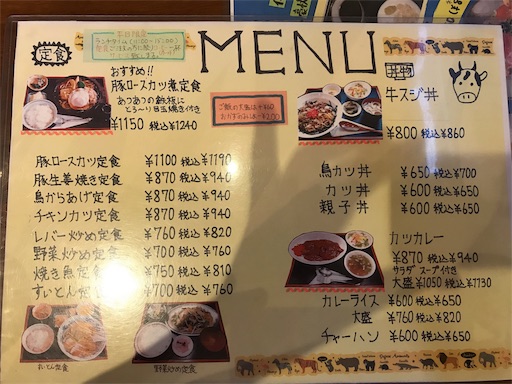 MENU
定食
おすすめ!!
豚ロースカツ煮定食
あつあつの鉄板に
とろ〜り目玉焼き付き
¥1150 税込¥1240
ご飯の大盛は+¥60
豚ロースカツ定食 ¥1100 税込¥1190
豚生姜焼き定食 ¥870 税込¥940
鳥からあげ定食 ¥870 税込¥940
チキンカツ定食 ¥870 税込¥940
レバー炒め定食 ¥760 税込¥820
野菜炒め定食 ¥700 税込¥760
焼き魚定食 ¥750 税込¥810
すいとん定食 ¥700 税込¥760
すいとん定食
野菜炒め定食
丼物
牛スジ丼
¥800 税込¥860
鳥カツ丼 ¥650 税込¥700
カツ丼 ¥600 税込¥650
親子丼 ¥600 税込¥650
カツカレー
¥870 税込¥940
サラダ スープ付き
大盛 ¥1050 税込¥1130
カレーライス ¥600 税込¥650
大盛 ¥760 税込¥820
チャーハン ¥600 税込¥650